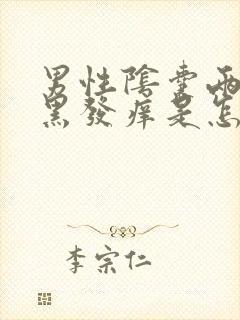 男性陰囊兩
黑發痒是怎
李宗仁